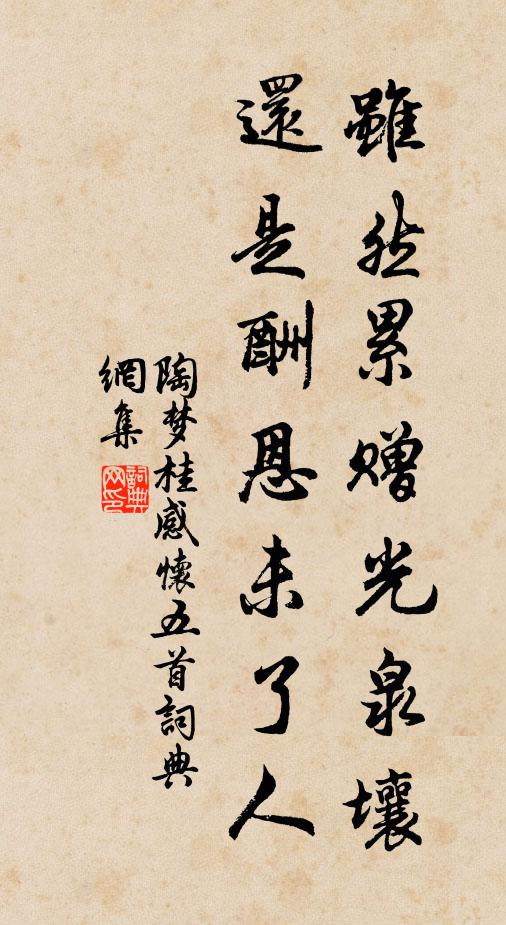 雖然累贈光泉壤
還是酬恩未了人
陶梦桂感懷五首詞典
網集
詞典网印